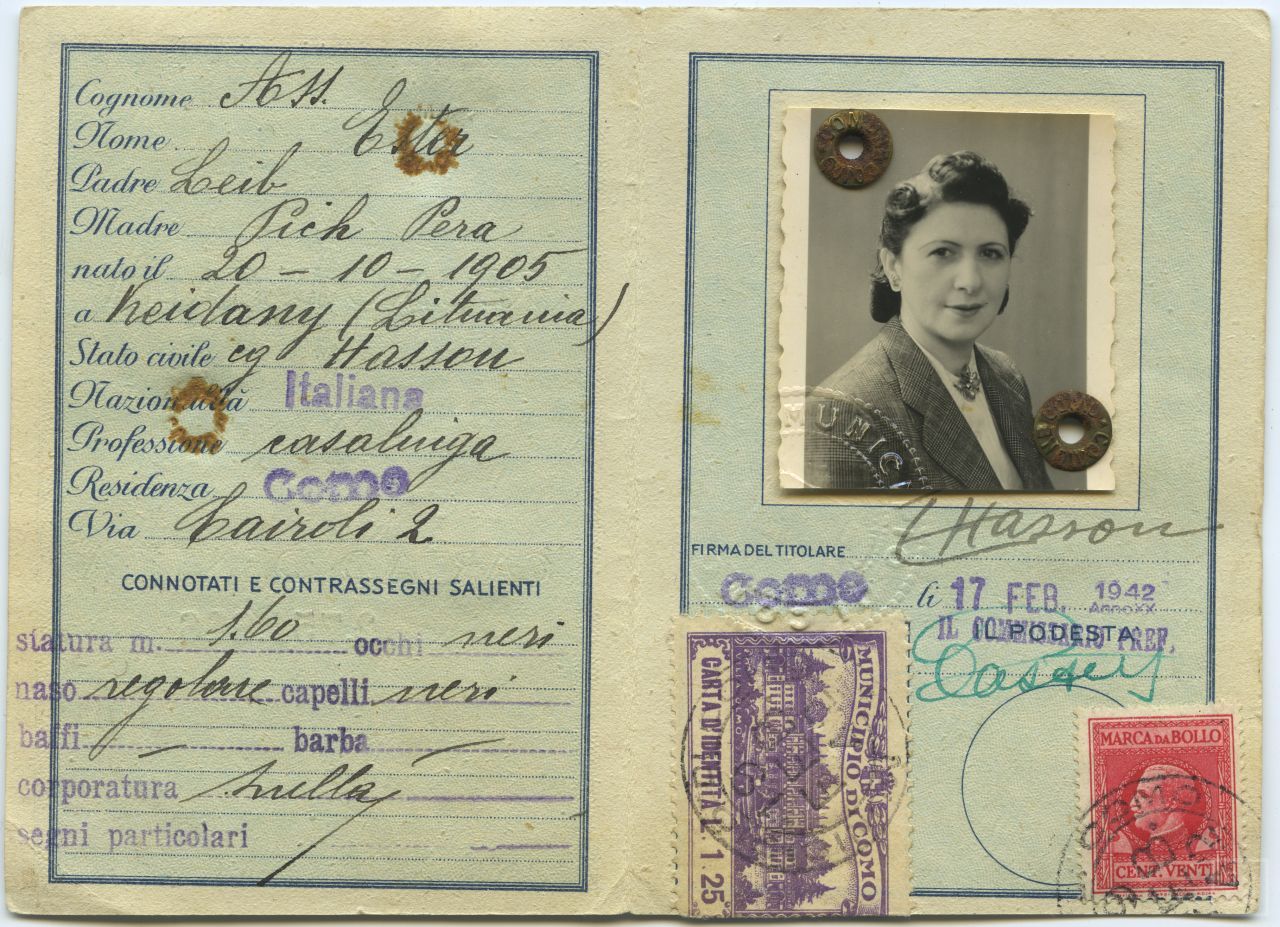 Cognome Ass.
Nome Ester
Padre Leib
Madre Pich Pera
nato il 20 - 10 - 1905
a Keidany (Lituania)
Stato civile cg Hasson
Nazionalità Italiana
Professione casalinga
Residenza Como
Via Cairoli 2
CONNOTATI E CONTRASSEGNI SALIENTI
statura m. 1.60 occhi neri
naso regolare capelli neri
baffi barba
corporatura snella
segni particolari
MUNICI
Hasson
FIRMA DEL TITOLARE
Como li 17 FEB. 1942
Anno XX
IL COMMISSARIO PREF.
IL PODESTÀ
MUNICIPIO DI COMO
CARTA D'IDENTITÀ L. 1 25
MARCA DA BOLLO
CENT. VENTI